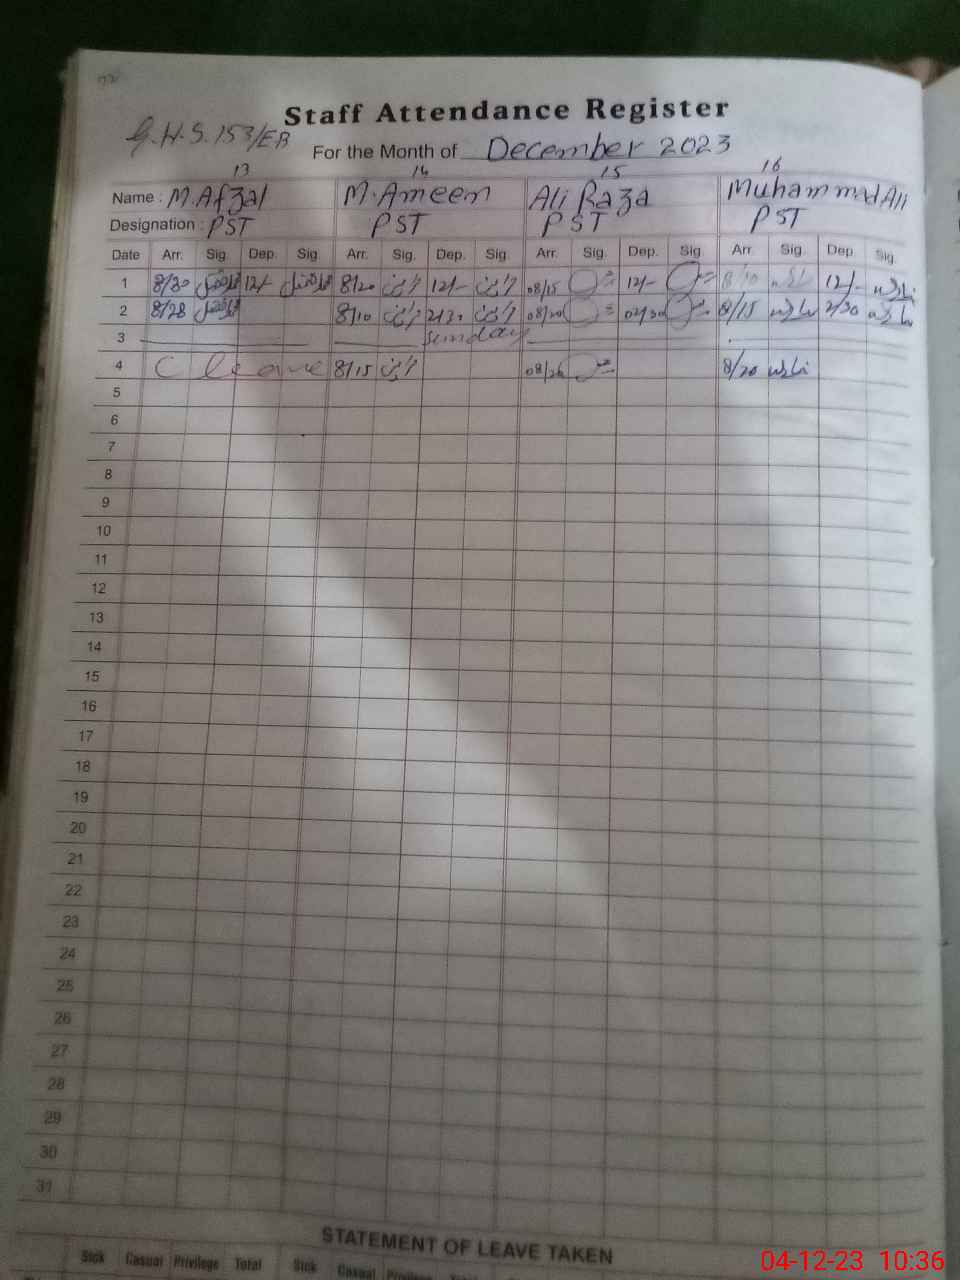 Staff Attendance Register
G.H.S.153/EB
For the Month of December 2023
13 14 15 16
Name : M.Afzal M.Ameen Ali Raza Muhammad Ali
Designation : PST PST PST PST
Date Arr. Sig. Dep. Sig. Arr. Sig. Dep. Sig. Arr. Sig. Dep. Sig. Arr. Sig. Dep. Sig.
1 8/30 12/- 8/20 12/- 08/15 12/- 8/10 12/-
2 8/28 8/10 2/30 08/20 02/30 8/15 2/30
3 Sunday
4 C leave 8/15 08/26 8/20
5
6
7
8
9
10
11
12
13
14
15
16
17
18
19
20
21
22
23
24
25
26
27
28
29
30
31
STATEMENT OF LEAVE TAKEN
Sick Casual Privilege Total Sick Casual Privilege
04-12-23 10:36